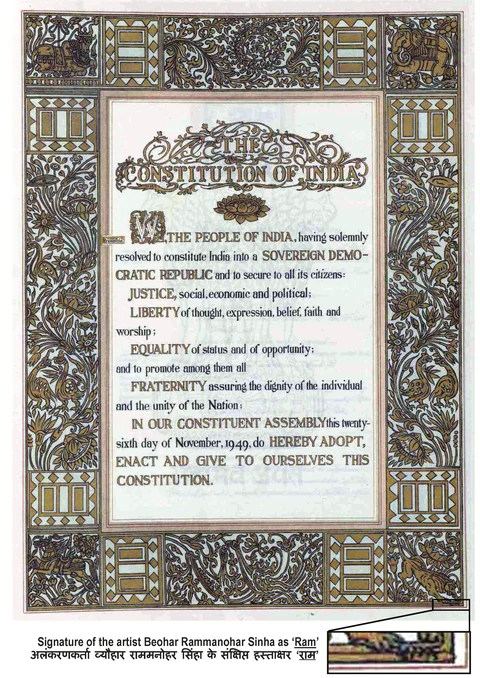 THE
CONSTITUTION OF INDIA
WE, THE PEOPLE OF INDIA, having solemnly
resolved to constitute India into a SOVEREIGN DEMO-
CRATIC REPUBLIC and to secure to all its citizens:
JUSTICE, social, economic and political;
LIBERTY of thought, expression, belief, faith and
worship;
EQUALITY of status and of opportunity;
and to promote among them all
FRATERNITY assuring the dignity of the individual
and the unity of the Nation;
IN OUR CONSTITUENT ASSEMBLY this twenty-
sixth day of November, 1949, do HEREBY ADOPT,
ENACT AND GIVE TO OURSELVES THIS
CONSTITUTION.
Signature of the artist Beohar Rammanohar Sinha as 'Ram'
अलंकरणकर्ता ब्यौहार राममनोहर सिंहा के संक्षिप्त हस्ताक्षर 'राम'